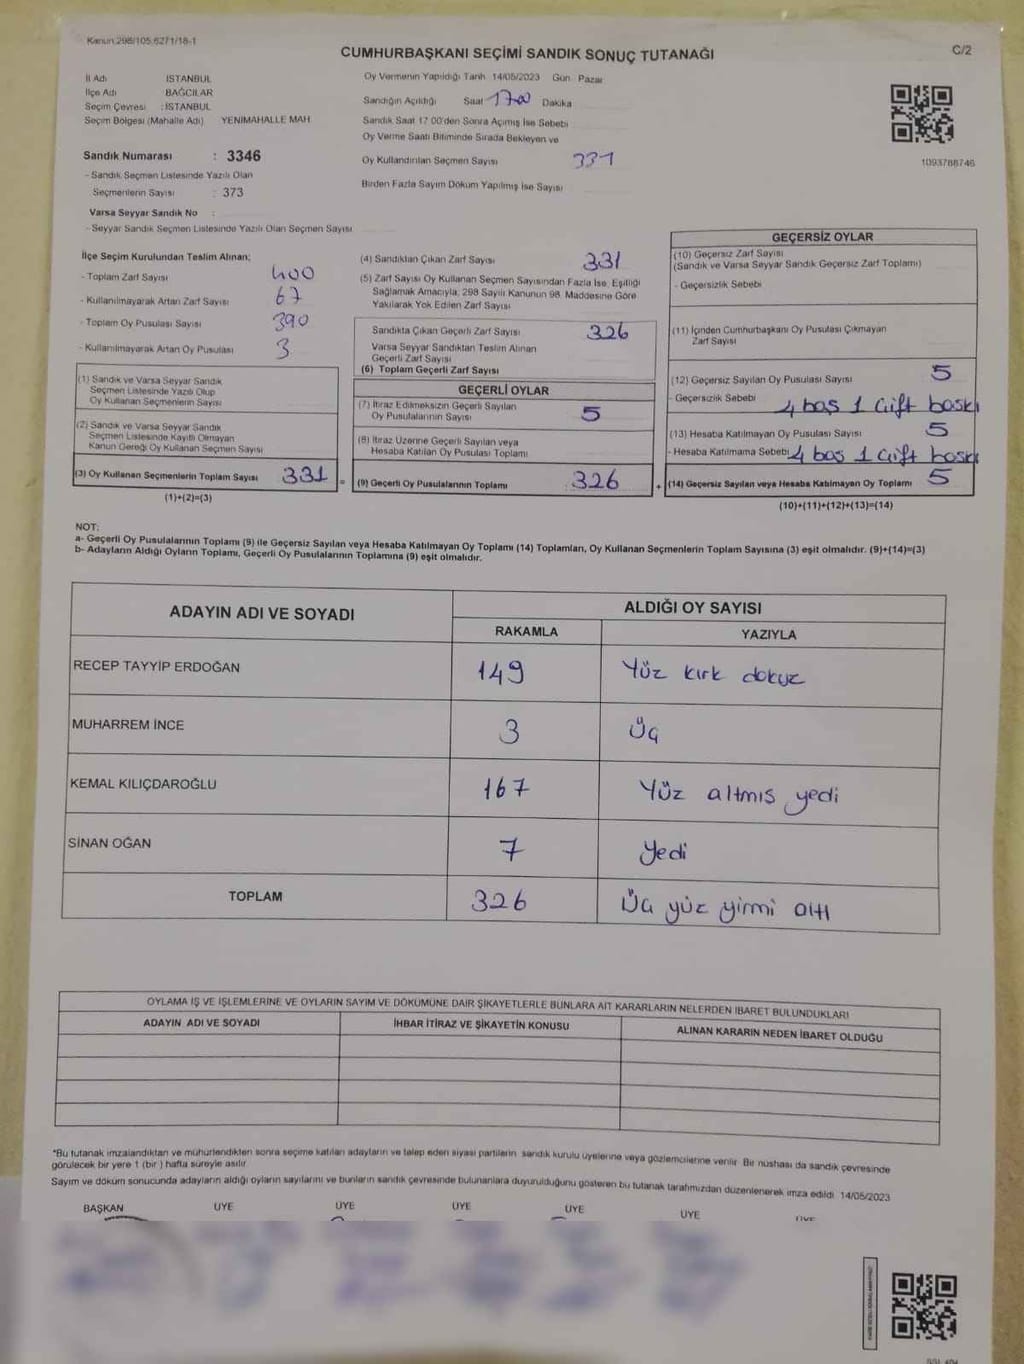 Kanun:298/105,6271/18-1
CUMHURBAŞKANI SEÇİMİ SANDIK SONUÇ TUTANAĞI
C/2
İl Adı İSTANBUL
İlçe Adı BAĞCILAR
Seçim Çevresi : İSTANBUL
Seçim Bölgesi (Mahalle Adı) YENİMAHALLE MAH.
Oy Vermenin Yapıldığı Tarih 14/05/2023 Gün Pazar
Sandığın Açıldığı Saat 17 00 Dakika
Sandık Saat 17:00'den Sonra Açımış İse Sebebi
Oy Verme Saati Bitiminde Sırada Bekleyen ve
Oy Kullandırılan Seçmen Sayısı 331
Birden Fazla Sayım Döküm Yapılmış İse Sayısı
1093788746
Sandık Numarası : 3346
- Sandık Seçmen Listesinde Yazılı Olan
Seçmenlerin Sayısı : 373
Varsa Seyyar Sandık No :
- Seyyar Sandık Seçmen Listesinde Yazılı Olan Seçmen Sayısı
İlçe Seçim Kurulundan Teslim Alınan;
- Toplam Zarf Sayısı 400
- Kullanılmayarak Artan Zarf Sayısı 67
- Toplam Oy Pusulası Sayısı 390
- Kullanılmayarak Artan Oy Pusulası 3
(1) Sandık ve Varsa Seyyar Sandık
Seçmen Listesinde Yazılı Olup
Oy Kullanan Seçmenlerin Sayısı
(2) Sandık ve Varsa Seyyar Sandık
Seçmen Listesinde Kayıtlı Olmayan
Kanun Gereği Oy Kullanan Seçmen Sayısı
(3) Oy Kullanan Seçmenlerin Toplam Sayısı 331 =
(1)+(2)=(3)
(4) Sandıktan Çıkan Zarf Sayısı 331
(5) Zarf Sayısı Oy Kullanan Seçmen Sayısından Fazla İse, Eşitliği
Sağlamak Amacıyla; 298 Sayılı Kanunun 98. Maddesine Göre
Yakılarak Yok Edilen Zarf Sayısı
Sandıkta Çıkan Geçerli Zarf Sayısı 326
Varsa Seyyar Sandıktan Teslim Alınan
Geçerli Zarf Sayısı
(6) Toplam Geçerli Zarf Sayısı
GEÇERLİ OYLAR
(7) İtiraz Edilmeksizin Geçerli Sayılan
Oy Pusulalarının Sayısı 5
(8) İtiraz Üzerine Geçerli Sayılan veya
Hesaba Katılan Oy Pusulası Toplamı
(9) Geçerli Oy Pusulalarının Toplamı 326 +
GEÇERSİZ OYLAR
(10) Geçersiz Zarf Sayısı
(Sandık ve Varsa Seyyar Sandık Geçersiz Zarf Toplamı)
- Geçersizlik Sebebi
(11) İçinden Cumhurbaşkanı Oy Pusulası Çıkmayan
Zarf Sayısı
(12) Geçersiz Sayılan Oy Pusulası Sayısı 5
- Geçersizlik Sebebi 4 boş 1 çift baskı
(13) Hesaba Katılmayan Oy Pusulası Sayısı 5
- Hesaba Katılmama Sebebi 4 boş 1 çift baskı
(14) Geçersiz Sayılan veya Hesaba Katılmayan Oy Toplamı 5
(10)+(11)+(12)+(13)=(14)
NOT:
a- Geçerli Oy Pusulalarının Toplamı (9) ile Geçersiz Sayılan veya Hesaba Katılmayan Oy Toplamı (14) Toplamları, Oy Kullanan Seçmenlerin Toplam Sayısına (3) eşit olmalıdır. (9)+(14)=(3)
b- Adayların Aldığı Oyların Toplamı, Geçerli Oy Pusulalarının Toplamına (9) eşit olmalıdır.
ADAYIN ADI VE SOYADI ALDIĞI OY SAYISI
RAKAMLA YAZIYLA
RECEP TAYYİP ERDOĞAN 149 Yüz kırk dokuz
MUHARREM İNCE 3 Üç
KEMAL KILIÇDAROĞLU 167 Yüz altmış yedi
SİNAN OĞAN 7 Yedi
TOPLAM 326 Üç yüz yirmi altı
OYLAMA İŞ VE İŞLEMLERİNE VE OYLARIN SAYIM VE DÖKÜMÜNE DAİR ŞİKAYETLERLE BUNLARA AİT KARARLARIN NELERDEN İBARET BULUNDUKLARI
ADAYIN ADI VE SOYADI İHBAR İTİRAZ VE ŞİKAYETİN KONUSU ALINAN KARARIN NEDEN İBARET OLDUĞU
*Bu tutanak imzalandıktan ve mühürlendikten sonra seçime katılan adayların ve talep eden siyasi partilerin sandık kurulu üyelerine veya gözlemcilerine verilir. Bir nüshası da sandık çevresinde
görülecek bir yere 1 (bir) hafta süreyle asılır.
Sayım ve döküm sonucunda adayların aldığı oyların sayılarını ve bunların sandık çevresinde bulunanlara duyurulduğunu gösteren bu tutanak tarafımızdan düzenlenerek imza edildi. 14/05/2023
BAŞKAN ÜYE ÜYE ÜYE ÜYE ÜYE ÜYE